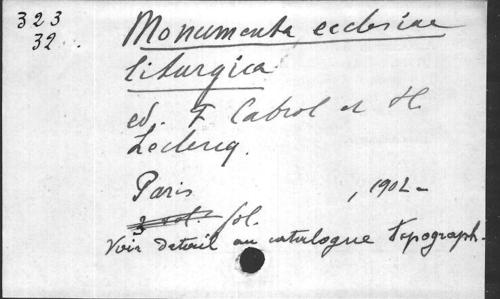 323
32.
Monumenta ecclesiae
liturgica
ed. F Cabrol et H.
Leclercq.
Paris , 1902-
3 vol. fol.
Voir detail au catalogue topograph.